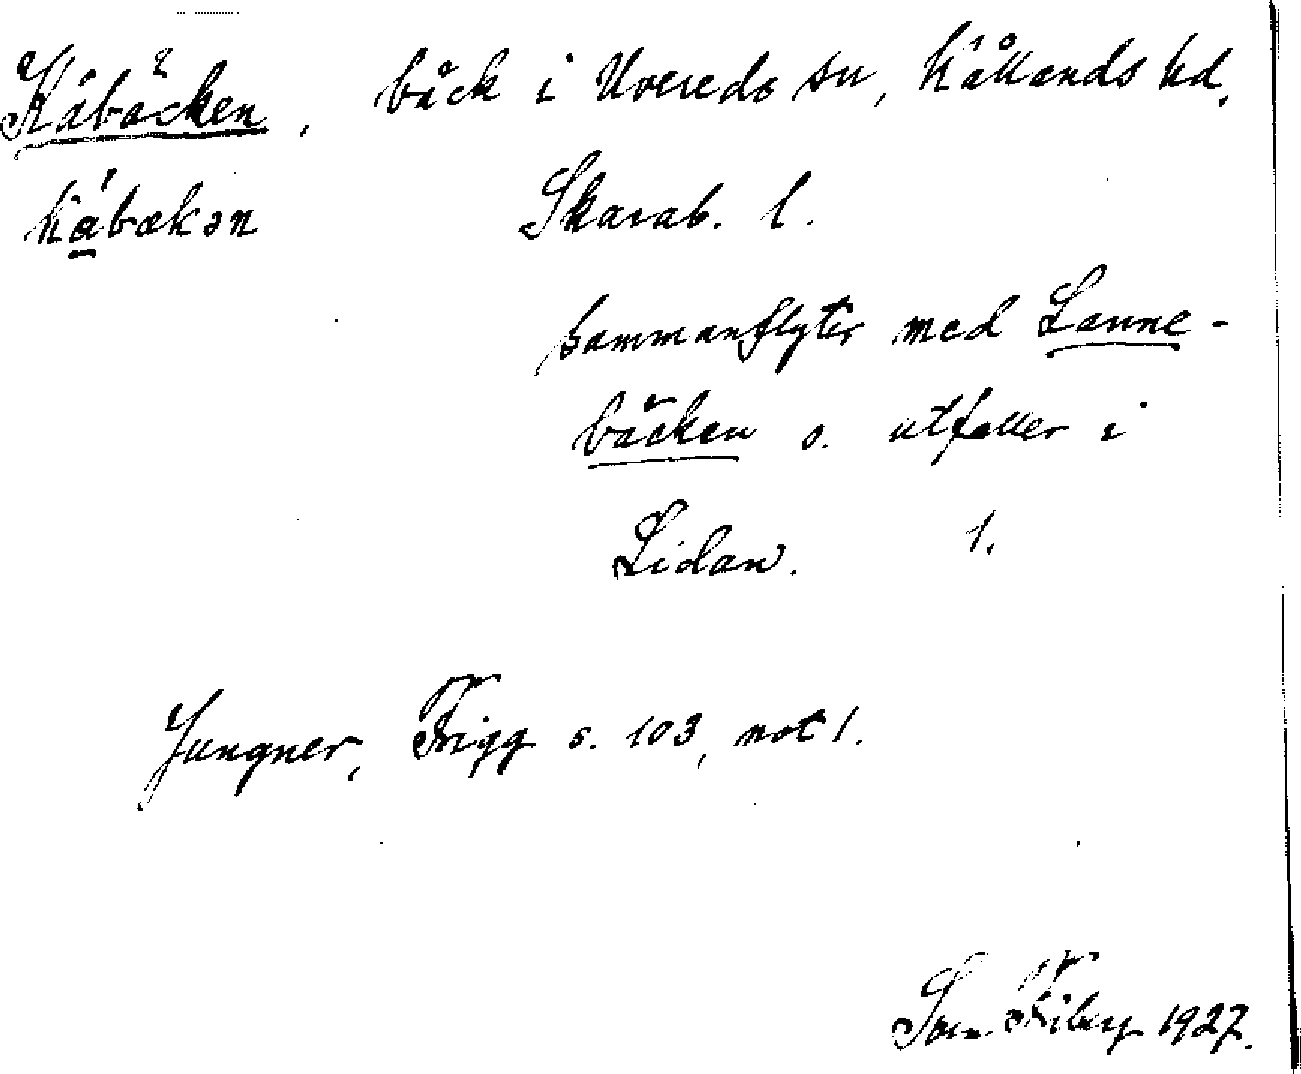 Kåbäcken, bäck i Uvereds sn, Kållands hd,
kåbækən Skarab. l.
sammanflyter med Lanne-
bäcken o. utfaller i
Lidan. 1.
Jungner, Frigg s. 103, not 1.
Sven Fiby 1927.